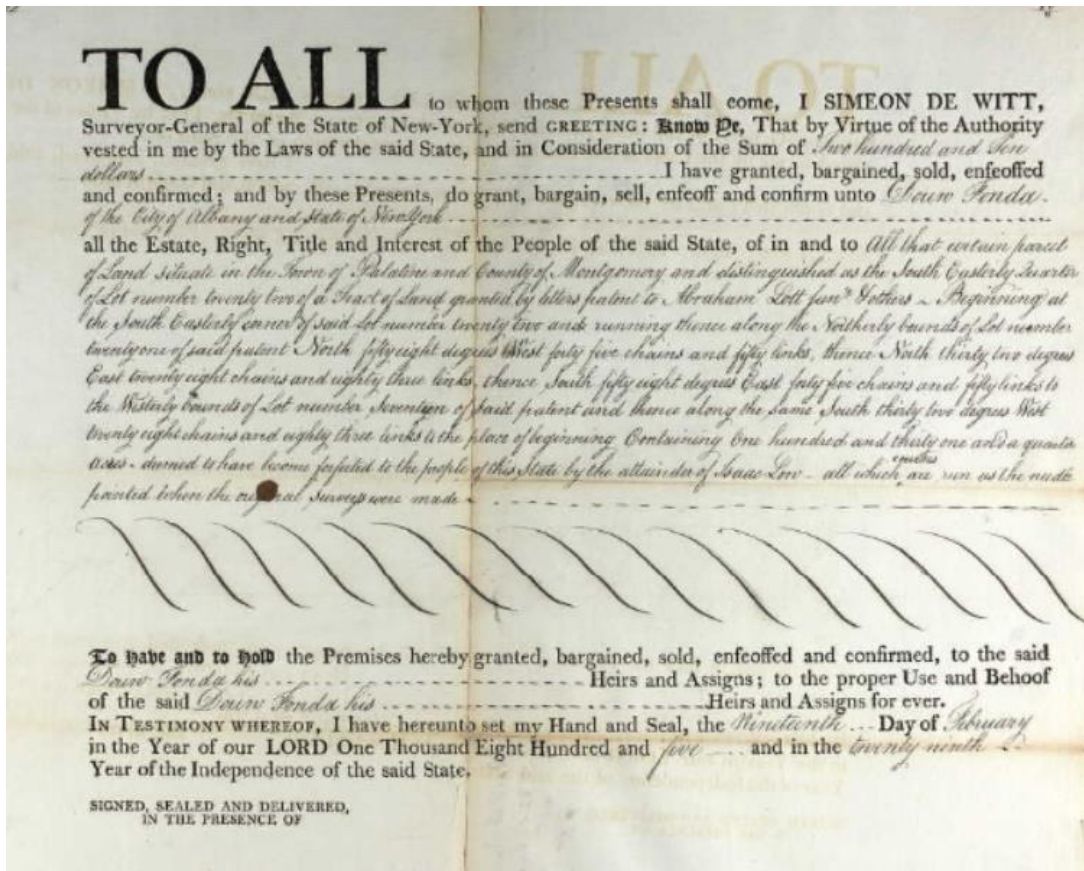 TO ALL to whom these Presents shall come, I SIMEON DE WITT,
Surveyor-General of the State of New-York, send GREETING: Know Ye, That by Virtue of the Authority
vested in me by the Laws of the said State, and in Consideration of the Sum of Two hundred and Ten
dollars I have granted, bargained, sold, enfeoffed
and confirmed; and by these Presents, do grant, bargain, sell, enfeoff and confirm unto Douw Fonda
of the City of Albany and State of New York
all the Estate, Right, Title and Interest of the People of the said State, of in and to All that certain parcel
of Land situate in the Town of Palatine and County of Montgomery and distinguished as the South Easterly Quarter
of Lot number twenty two of a Tract of Land granted by letters patent to Abraham Lott junr & others - Beginning at
the South Easterly corner of said Lot number twenty two and running thence along the Northerly bounds of Lot number
twenty one of said patent North fifty eight degrees West forty five chains and fifty links, thence North thirty two degrees
East twenty eight chains and eighty three links, thence South fifty eight degrees East forty five chains and fifty links to
the Westerly bounds of Lot number Seventeen of said patent and thence along the same South thirty two degrees West
twenty eight chains and eighty three links to the place of beginning Containing One hundred and thirty one and a quarter
acres - deemed to have become forfeited to the people of this State by the attainder of Isaac Low - all which are run as the needle
pointed when the original Surveys were made -
To Have and to Hold the Premises hereby granted, bargained, sold, enfeoffed and confirmed, to the said
Douw Fonda his Heirs and Assigns; to the proper Use and Behoof
of the said Douw Fonda his Heirs and Assigns for ever.
IN TESTIMONY WHEREOF, I have hereunto set my Hand and Seal, the Nineteenth Day of February
in the Year of our LORD One Thousand Eight Hundred and five and in the twenty ninth
Year of the Independence of the said State.
SIGNED, SEALED AND DELIVERED,
IN THE PRESENCE OF